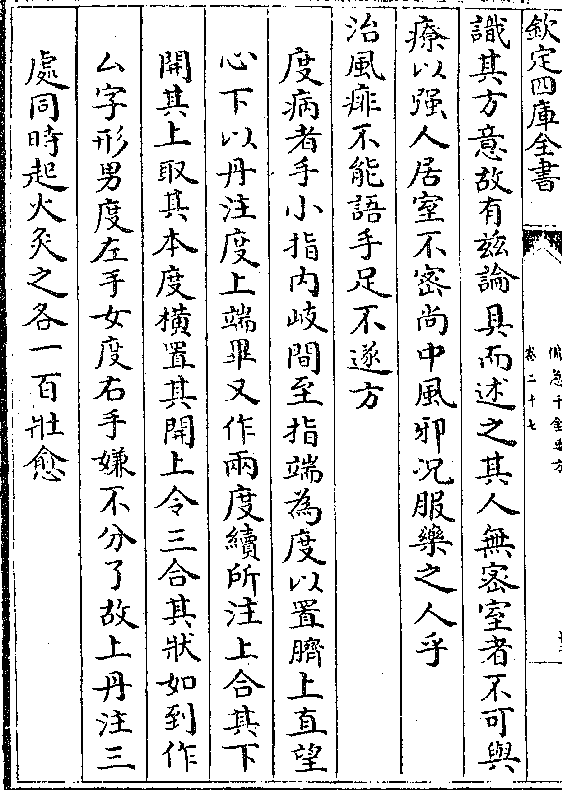 欽定四庫全書
備急千金要方
卷二十七
識其方意故有兹論具而述之其人無密室者不可與
療以强人居室不密尚中風邪况服藥之人乎
治風痱不能語手足不遂方
度病者手小指内岐間至指端為度以置臍上直望
心下以丹注度上端畢又作兩度續所注上合其下
開其上取其本度横置其開上令三合其狀如到作
厶字形男度左手女度右手嫌不分了故上丹注三
處同時起火灸之各一百壯愈